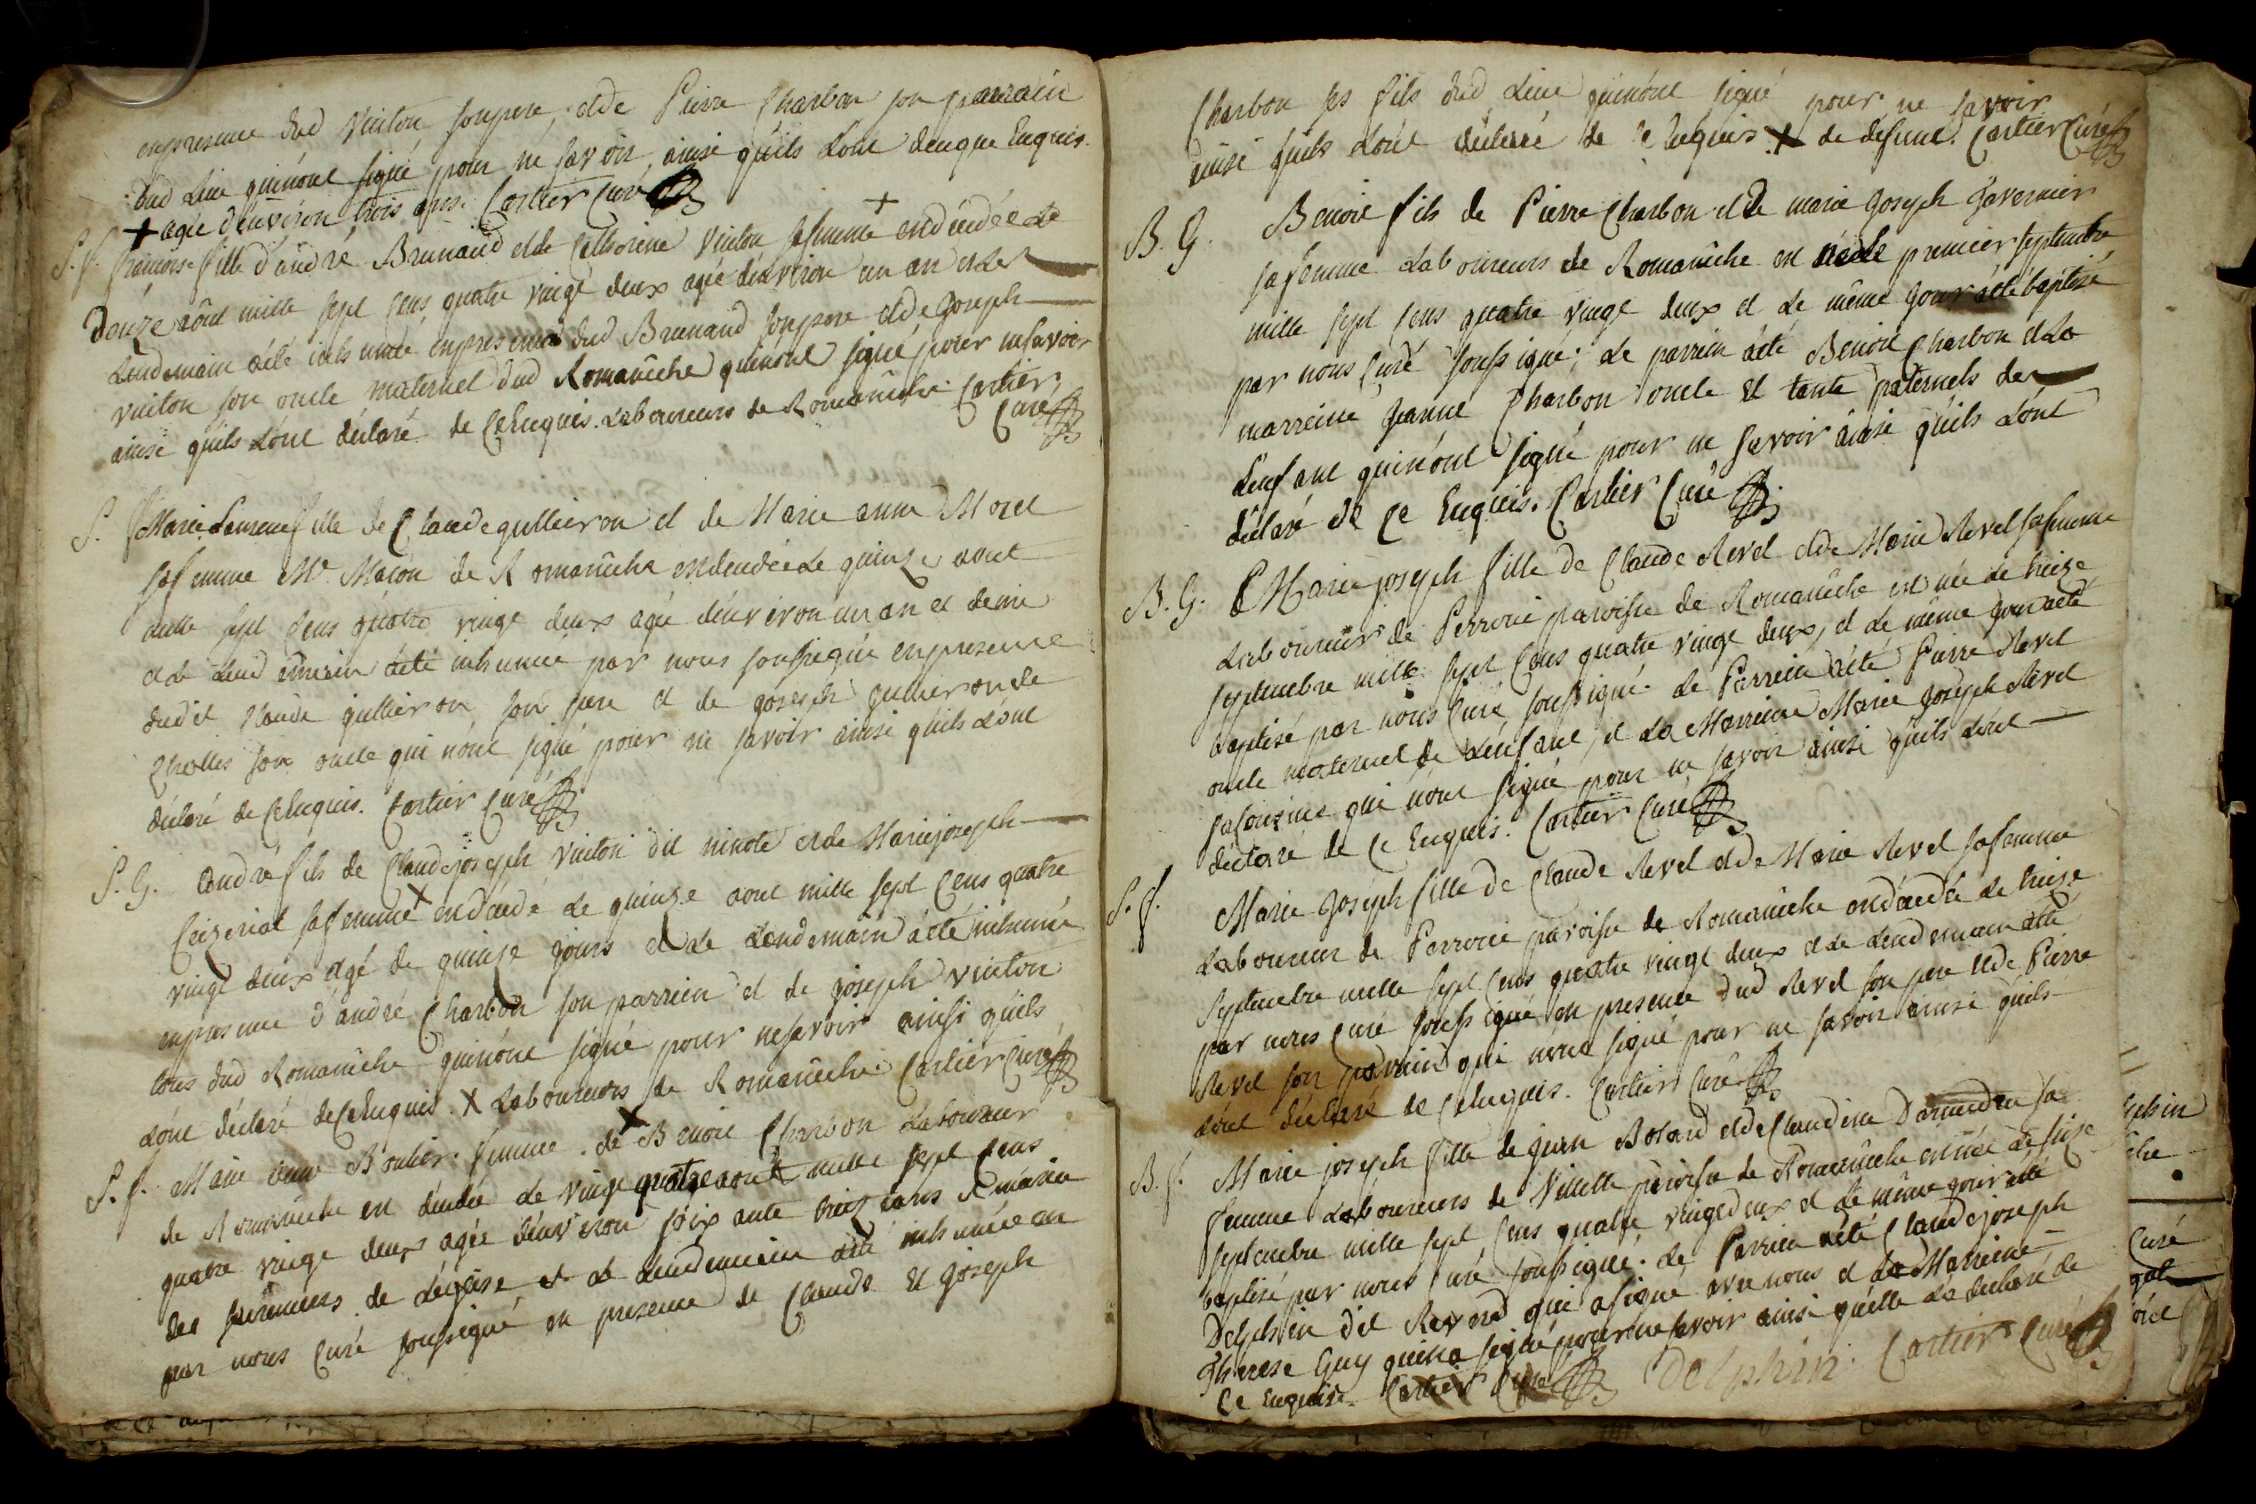 en presence dud vuiton son pere, et de Pierre Charbon son parrain
dud Lieu qui n'ont signé pour ne savoir ainsi qu'ils L'ont de ce que Enquis.
+ agée d'environ trois ans. Cartier Curé
S. f. françoise fille d'andré Brunaud et de Catherine vuiton sa femme + en décédée Le
Douze aôut mille sept Cens quatre vingt deux agée d'environ un an et Le
Lendemain a été inhumée en presence dud Brunaud son pere et de Joseph
vuiton son oncle maternel dud Romanêche qui n'ont signé pour ne savoir
ainsi qu'ils L'ont déclaré de Ce Enquis. Laboureurs de Romanêche Cartier
Curé
S. f Marie Laurence fille de Claude gullieron et de Marie anne Morel
sa femme Me Macon de Romanêche en décédée Le quinze aout
mille sept Cens quatre vingt deux agée d'environ un an et demi
et Le Lendemain a été inhumée par nous soussigné en presence
dudit Claude gullieron son pere et de joseph gullieron de
Chelles son oncle qui n'ont signé pour ne savoir ainsi qu'ils L'ont
déclaré de Ce Enquis. Cartier Curé
S. G. André fils de Claude joseph vuiton dit ninote et de Marie joseph
Ceizeriat sa femme x en décédé Le quinze aout mille sept Cens quatre
vingt deux agé de quinze jours et Le Lendemain a été inhumé
en presence d'andré Charbon son parrein et de joseph vuiton
tous dud Romanêche qui n'ont signé pour ne savoir ainsi qu'ils
L'ont déclaré de Ce Enquis. X Laboureurs de Romanêche Cartier Curé
S. f. Marie anne Boulier femme de x Benoit Charbon Laboureur
de Romanêche en décédée Le vingt quatre aout mille sept Cens
quatre vingt deux agée d'environ soixante ans
des sacremens de L'église, et Le Lendemain a été inhumée
par nous Curé soussigné en presence de Claude et Joseph
Charbon ses fils dud Lieu qui n'ont signé pour ne savoir
ainsi qu'ils L'ont déclaré de Ce Enquis. X de défunt. Cartier Curé
B. G. Benoit fils de Pierre Charbon et de marie Joseph Tavernier
sa femme Laboureurs de Romanêche en né le premier septembre
mille sept Cens quatre vingt deux et Le même jour a été baptisé
par nous Curé soussigné; Le parrein a été Benoit Charbon et La
marreine Jeanne Charbon oncle et tante paternels de
L'enfant qui n'ont signé pour ne savoir ainsi qu'ils L'ont
déclaré de Ce Enquis. Cartier Curé
B. G. Marie joseph fille de Claude Revel et de Marie Revel sa femme
Laboureur de Perroui paroisse de Romanêche est née Le treize
septembre mille sept Cens quatre vingt deux, et Le même jour a été
baptisé par nous Curé soussigné. Le Parrein a été Pierre Revel
oncle maternel de L'enfant, et La Marreine Marie Joseph Revel
sa Cousine qui n'ont signé pour ne savoir ainsi qu'ils L'ont
déclaré de Ce Enquis. Cartier Curé
S. f. Marie Joseph fille de Claude Revel et de Marie Revel sa femme
Laboureur de Perroui paroisse de Romanêche en décédée Le treize
Septembre mille sept Cens quatre vingt deux et Le Lendemain a été
par nous Curé soussigné en presence dud Revel son pere et de Pierre
Revel son parrain qui n'ont signé pour ne savoir ainsi qu'ils
L'ont déclaré de Ce Enquis. Cartier Curé
B. f. Marie joseph fille de jean Boland et de Claudine sa
femme Laboureurs de Villette paroisse de Romanêche en née Le seize
septembre mille sept Cens quatre vingt deux et Le même jour a été
baptisé par nous Curé soussigné. Le Parrein a été Claude joseph
Delphin dit qui a signé avec nous et La Marreine
Therese Guy qui n'a signé pour ne savoir ainsi qu'elle L'a declaré de
Ce Enquise. Cartier Curé Delphin. Cartier Curé